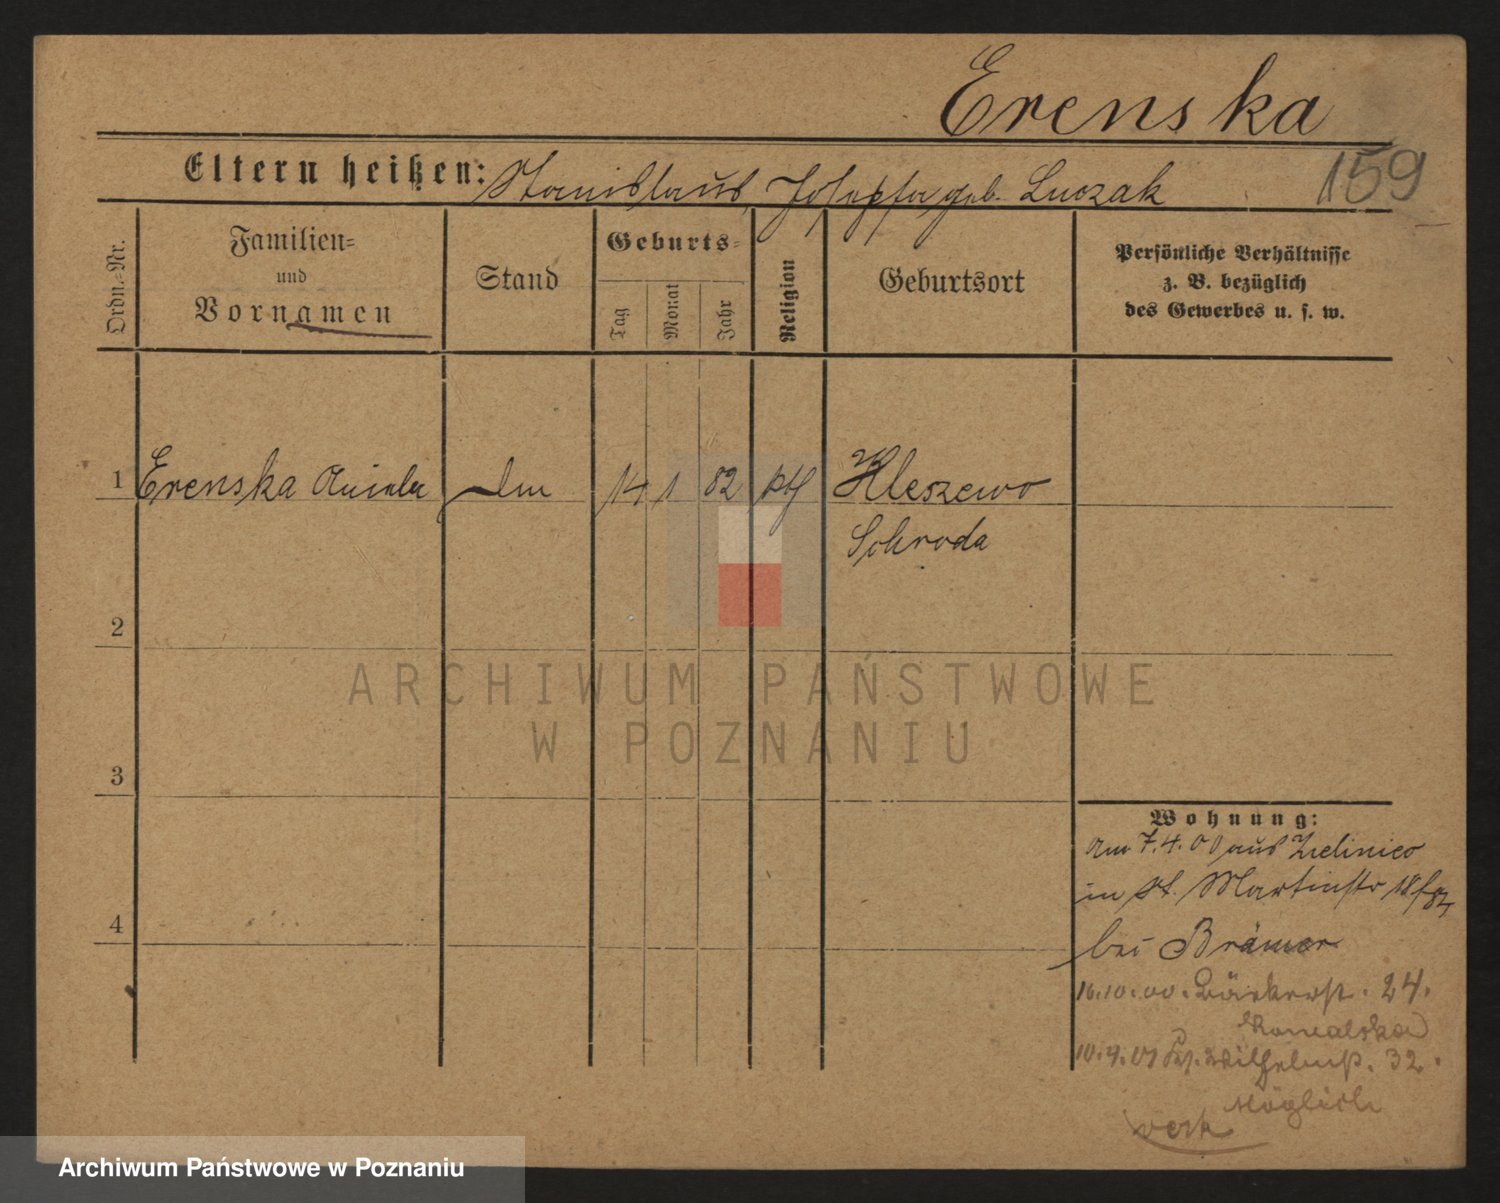 Erenska
159
Eltern heißen: Stanislaus, Josepha geb. Luczak
Ordn.-Nr.
Familien=
und
Vornamen
Stand
Geburts=
Tag
Monat
Jahr
Religion
Geburtsort
Persönliche Verhältnisse
z. B. bezüglich
des Gewerbes u. s. w.
1 Erenska 14 1 82 kth Kleszewo
Schroda
2
ARCHIWUM PAŃSTWOWE
W POZNANIU
3
Wohnung:
am 7.4.00 aus Zielinico
in St. Martinstr
4
bei Brämer
16.10.00. Bäckerst. 24.
Kowalska
Wilhelmst. 32.
Möglich
verh
Archiwum Państwowe w Poznaniu